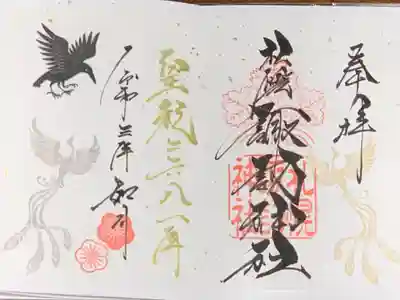 奉拝
札幌諏訪神社
皇紀二六八一年
令和三年 如月